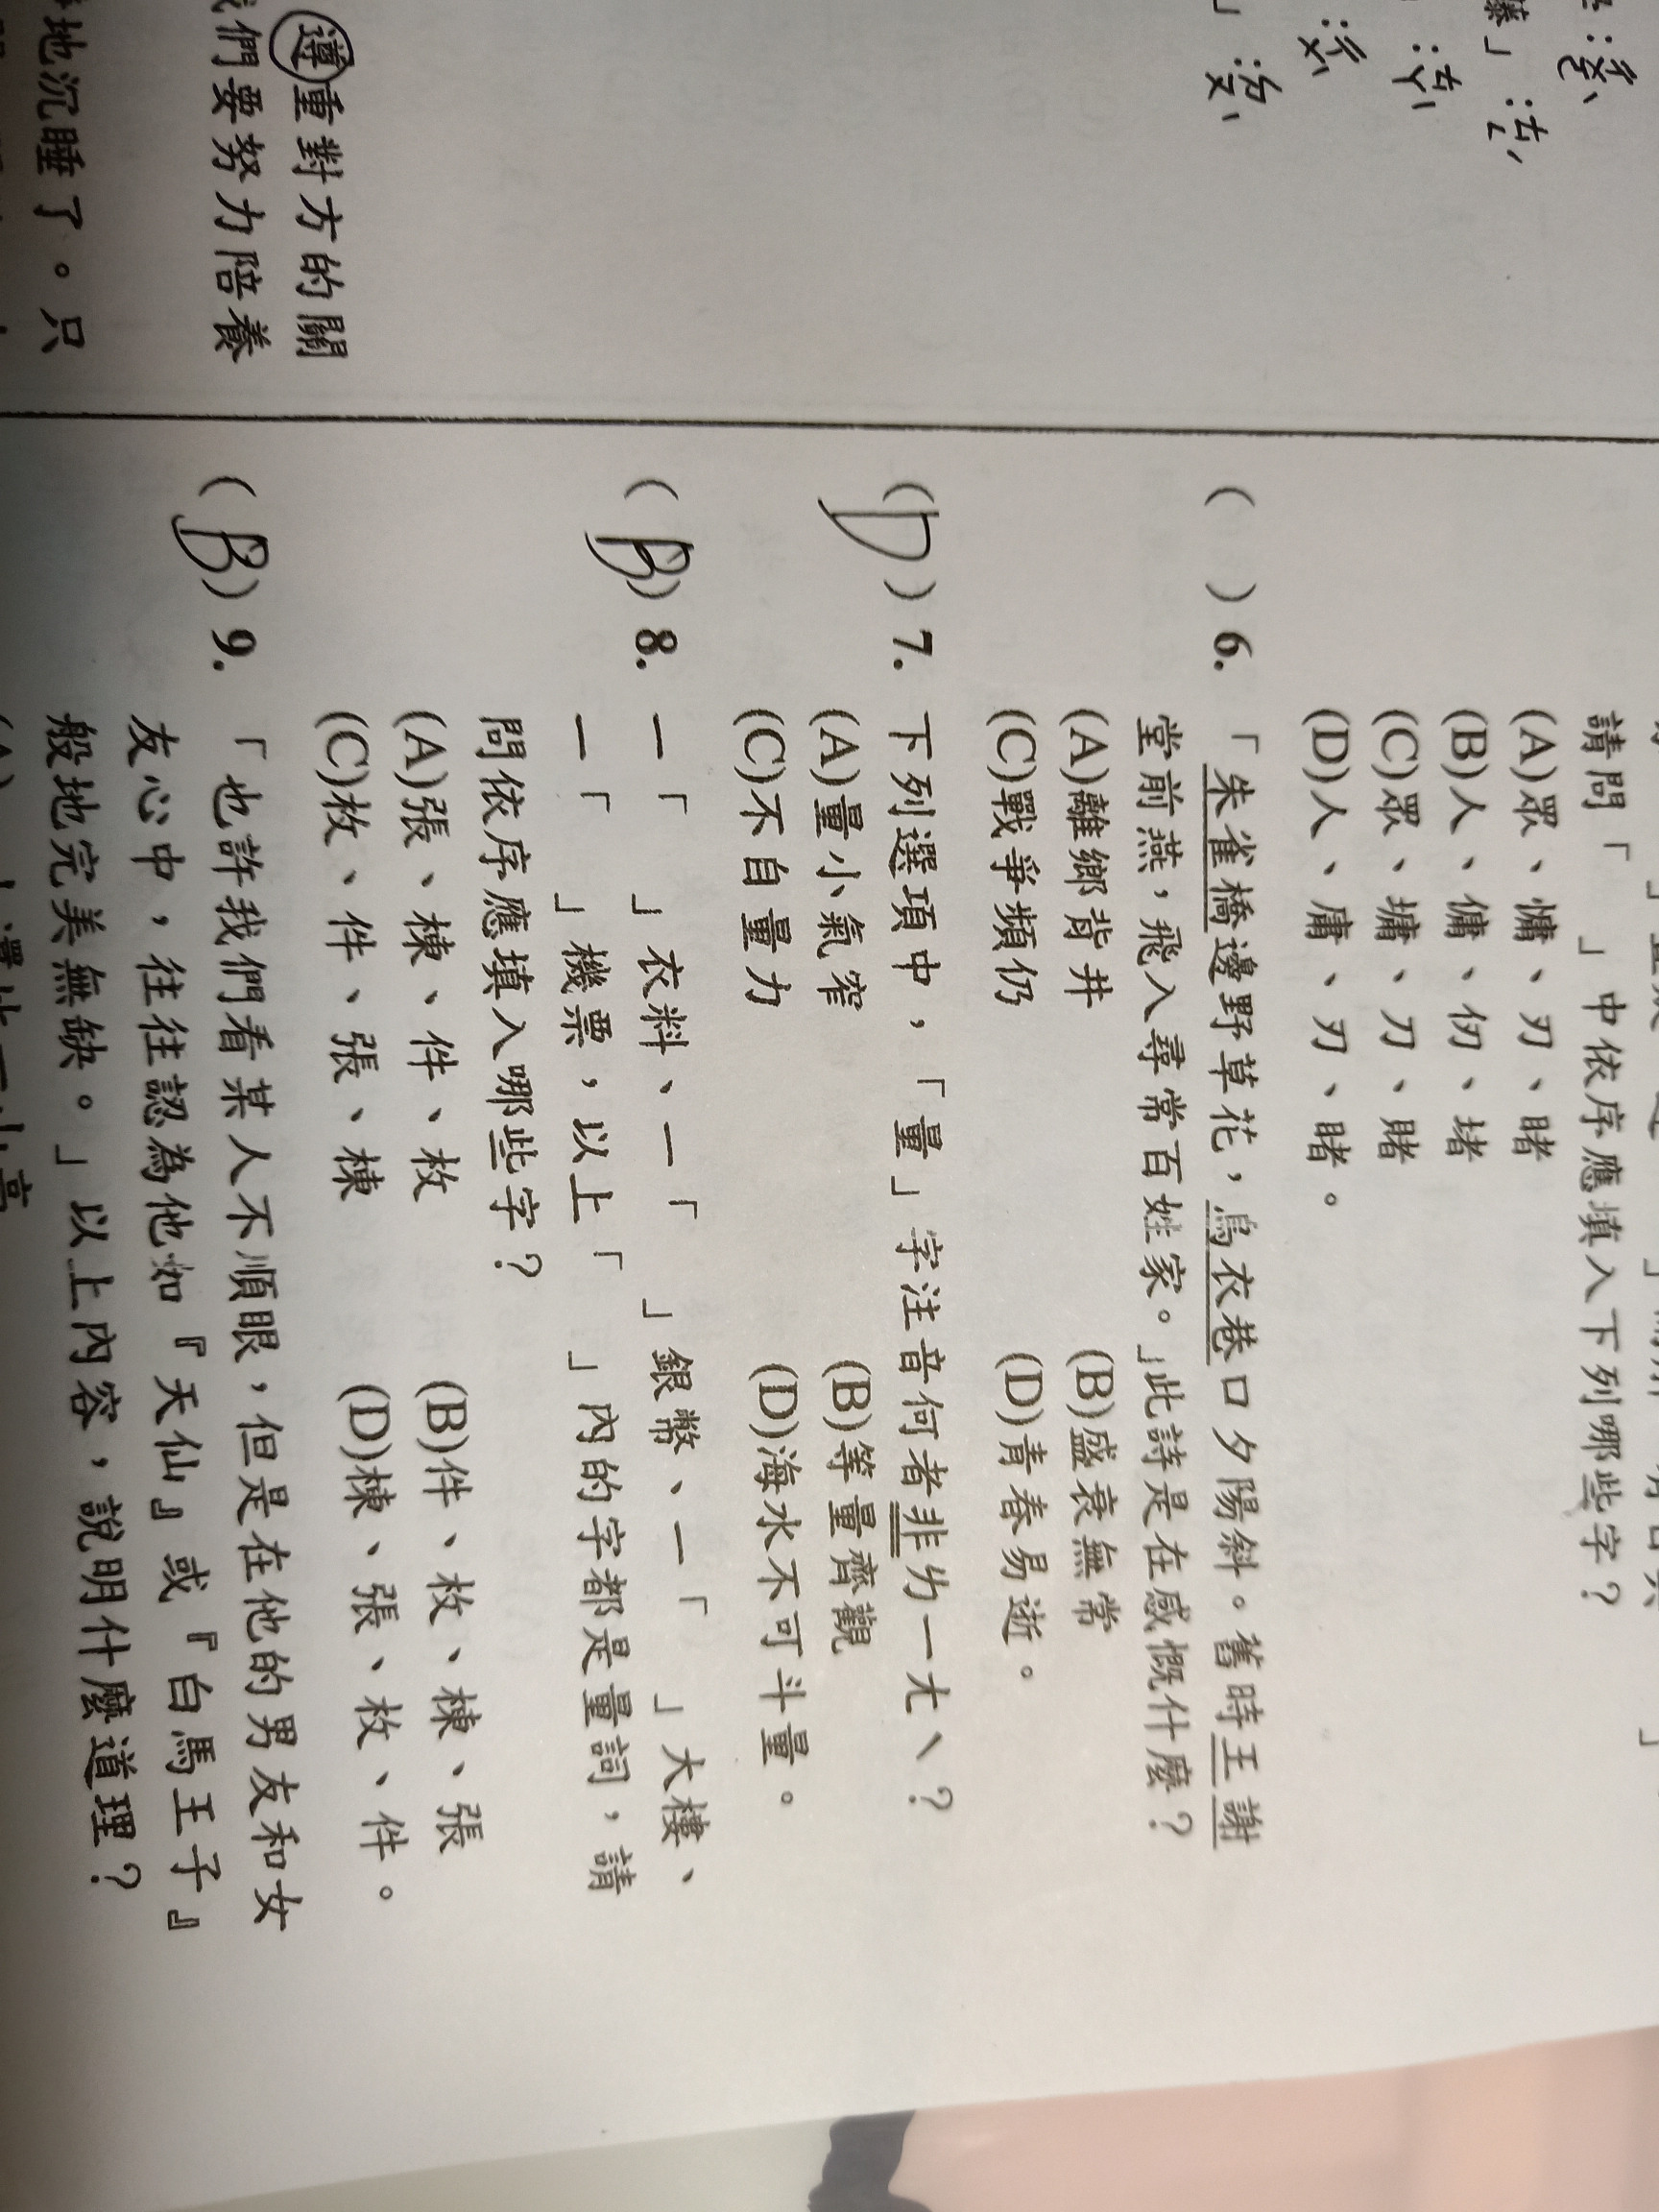 請問「 」中依序應填入下列哪些字?
(A)眾、慵、刃、睹
(B)人、傭、仞、堵
(C)眾、墉、刀、賭
(D)人、庸、刃、睹。
( )6.「朱雀橋邊野草花,烏衣巷口夕陽斜。舊時王謝
堂前燕,飛入尋常百姓家。」此詩是在感慨什麼?
(A)離鄉背井 (B)盛衰無常
(C)戰爭頻仍 (D)青春易逝。
(D)7.下列選項中,「量」字注音何者非ㄌㄧㄤˋ?
(A)量小氣窄 (B)等量齊觀
(C)不自量力 (D)海水不可斗量。
(B)8.一「 」衣料、一「 」銀幣、一「 」大樓、
一「 」機票,以上「 」內的字都是量詞,請
問依序應填入哪些字?
(A)張、棟、件、枚 (B)件、枚、棟、張
(C)枚、件、張、棟 (D)棟、張、枚、件。
(B)9.「也許我們看某人不順眼,但是在他的男友和女
友心中,往往認為他如『天仙』或『白馬王子』
般地完美無缺。」以上內容,說明什麼道理?
遵重對方的關
們要努力陪養
地沉睡了。只